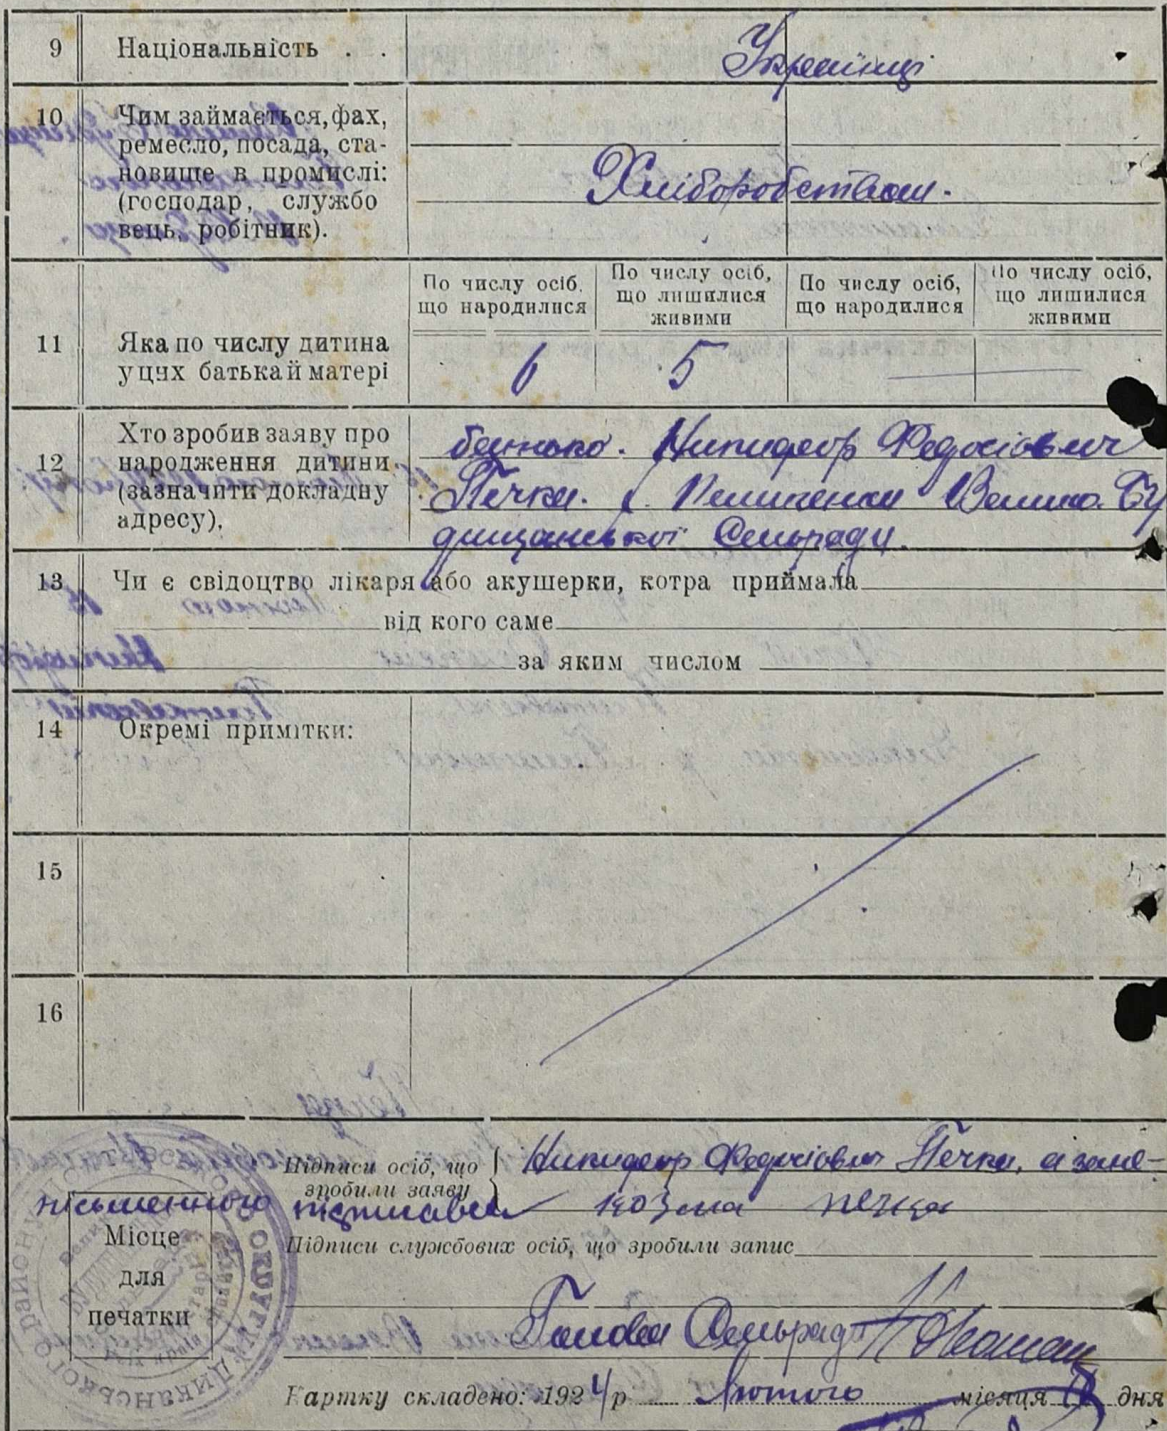 9 Національність . . Українці
10 Чим займається, фах,
ремесло, посада, ста-
новище в промислі:
(господар, службо
вець, робітник).
Хліборобством.
По числу осіб, що народилися
По числу осіб, що лишилися живими
По числу осіб, що народилися
По числу осіб, що лишилися живими
11 Яка по числу дитина
у цих батька й матері
6 5
12 Хто зробив заяву про
народження дитини
(зазначити докладну
адресу).
батько. Никифор Федосіович
Печка. Велико-Бу
дищанської Сельради.
13 Чи є свідоцтво лікаря або акушерки, котра приймала
від кого саме
за яким числом
14 Окремі примітки:
15
16
Підписи осіб, що
зробили заяву
Никифор Федосіович Печка, а зане-
письменного підписавсь козма печка
Місце
для
печатки
Підписи службових осіб, що зробили запис
Голова Сельради
Картку складено: 1924 р лютого місяця дня